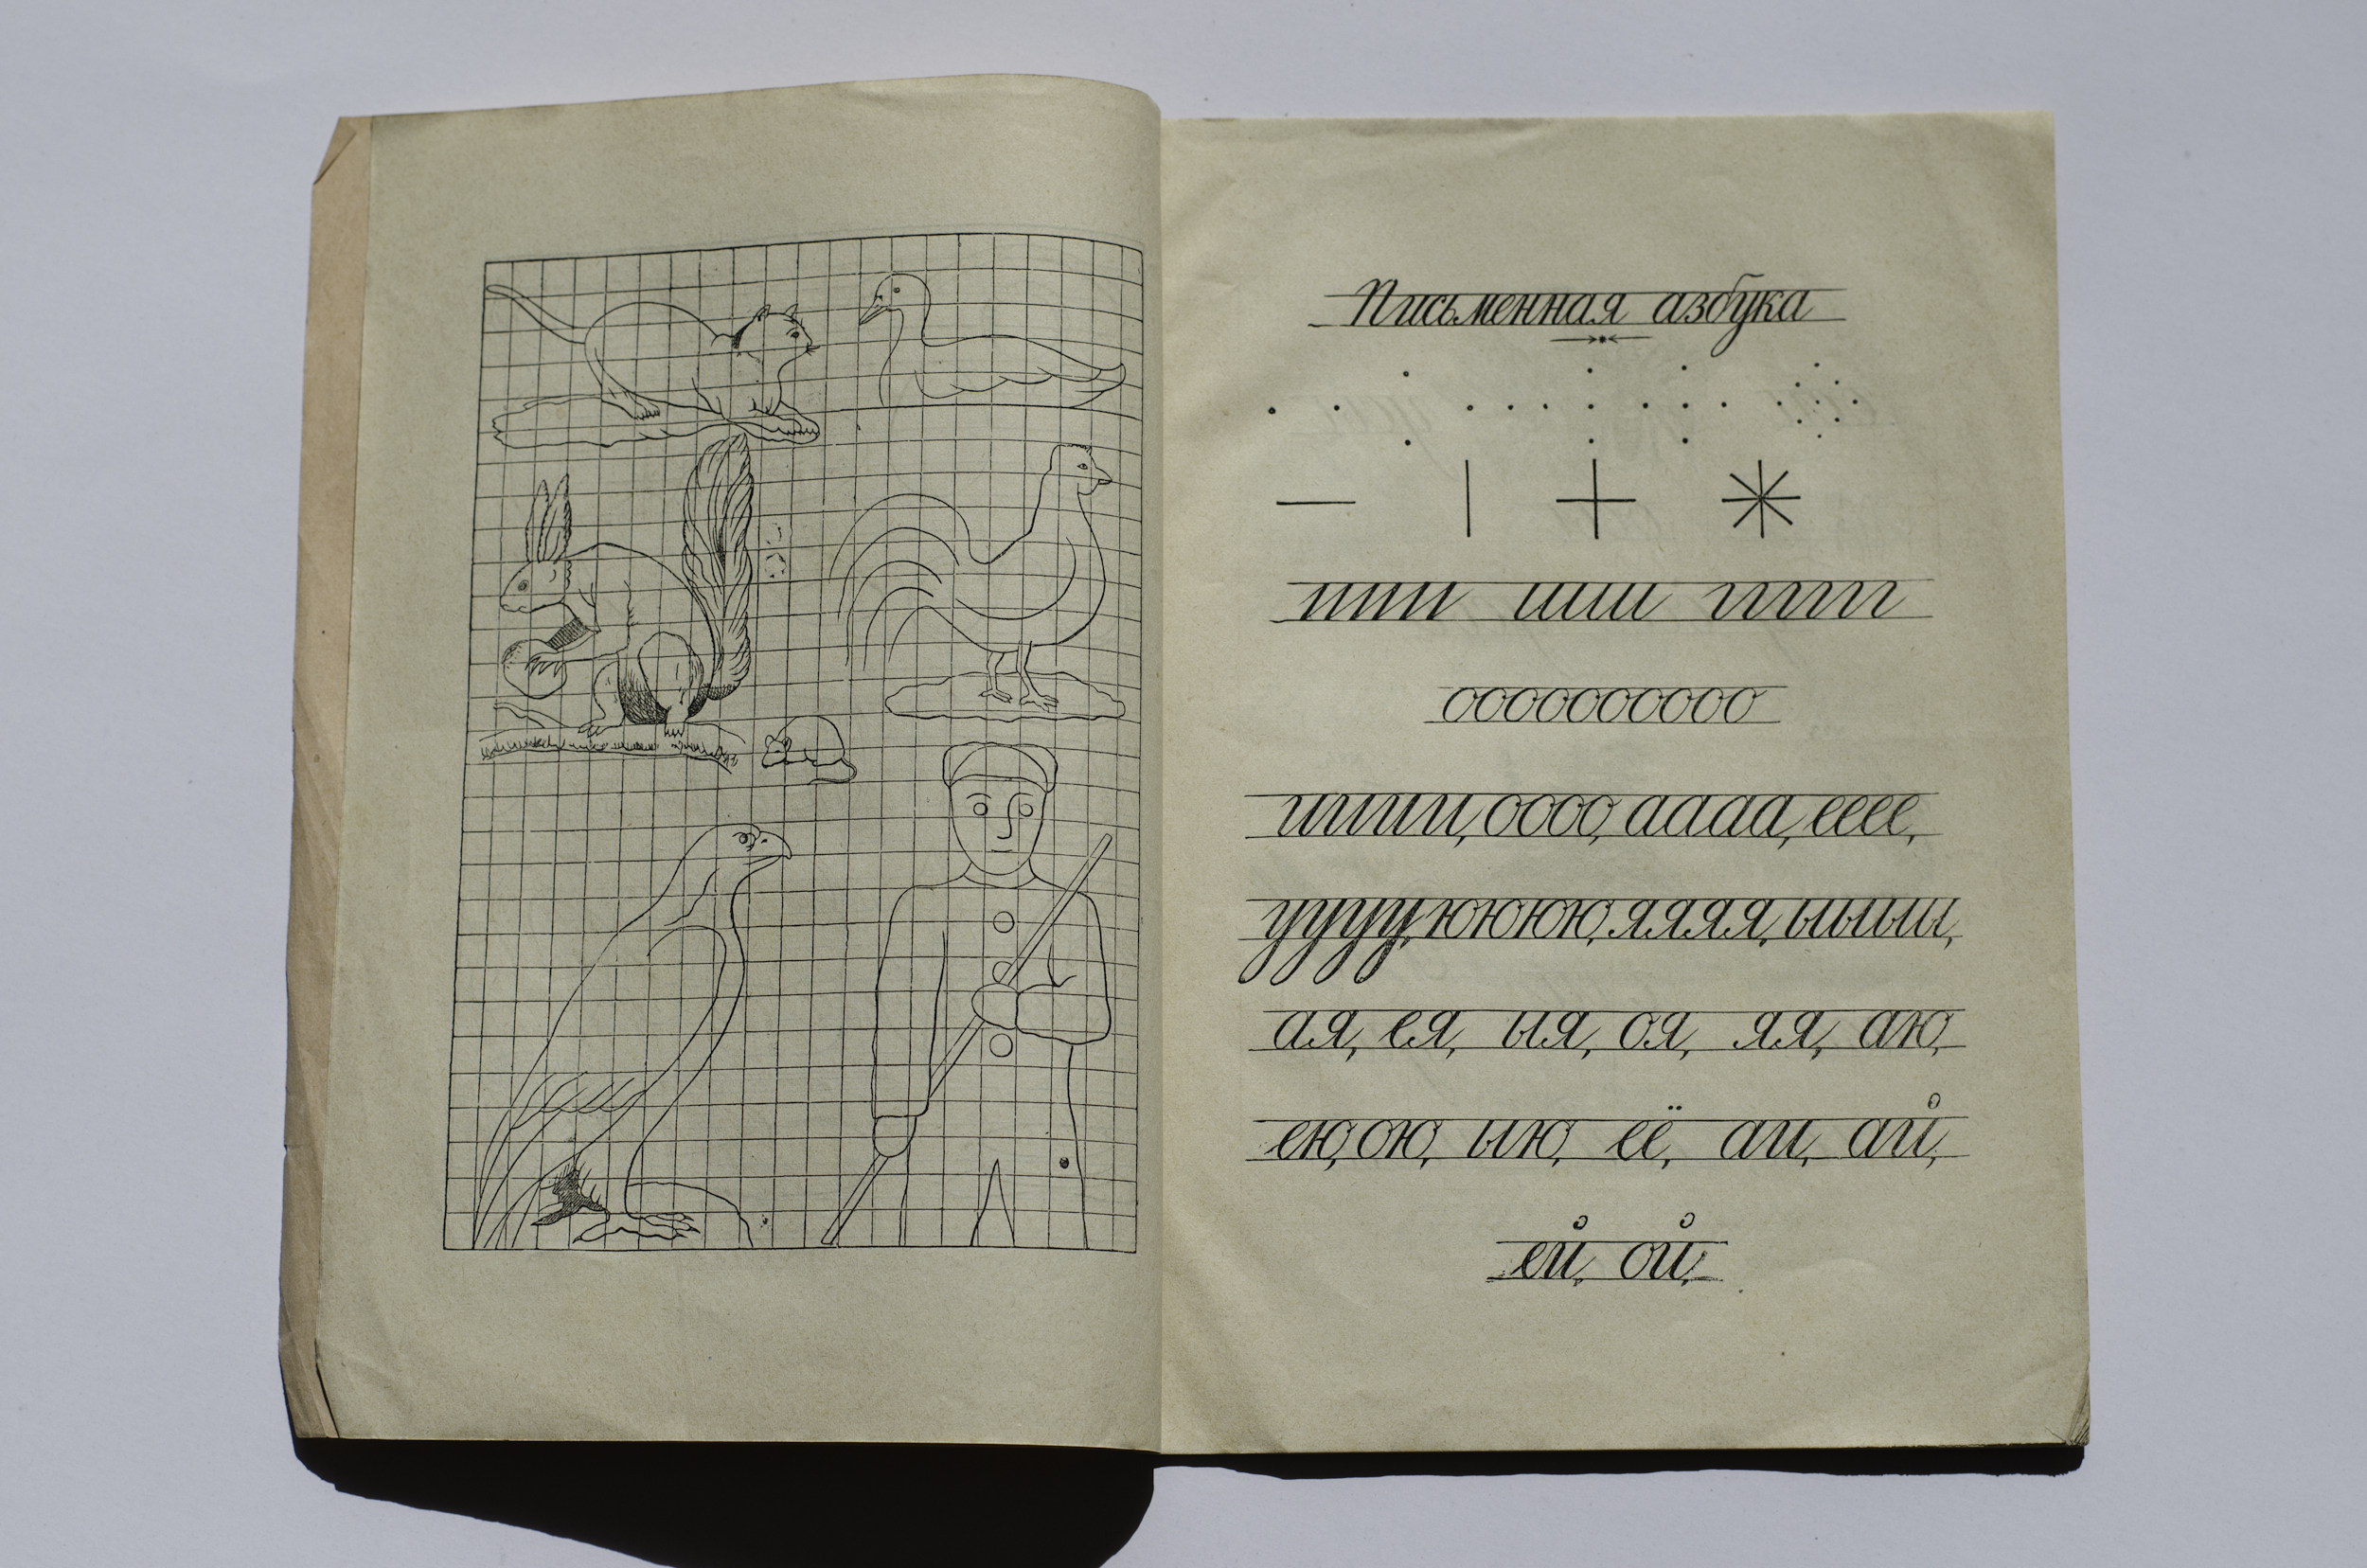 Письменная азбука
иии иии ииии
оооооооооо
ииии, оооо, аааа, ееее,
уууу, юююю, яяяя, ыыыы,
ая, ея, ыя, оя, яя, аю,
ею, ою, ыю, её, аи, ай,
ей, ой,